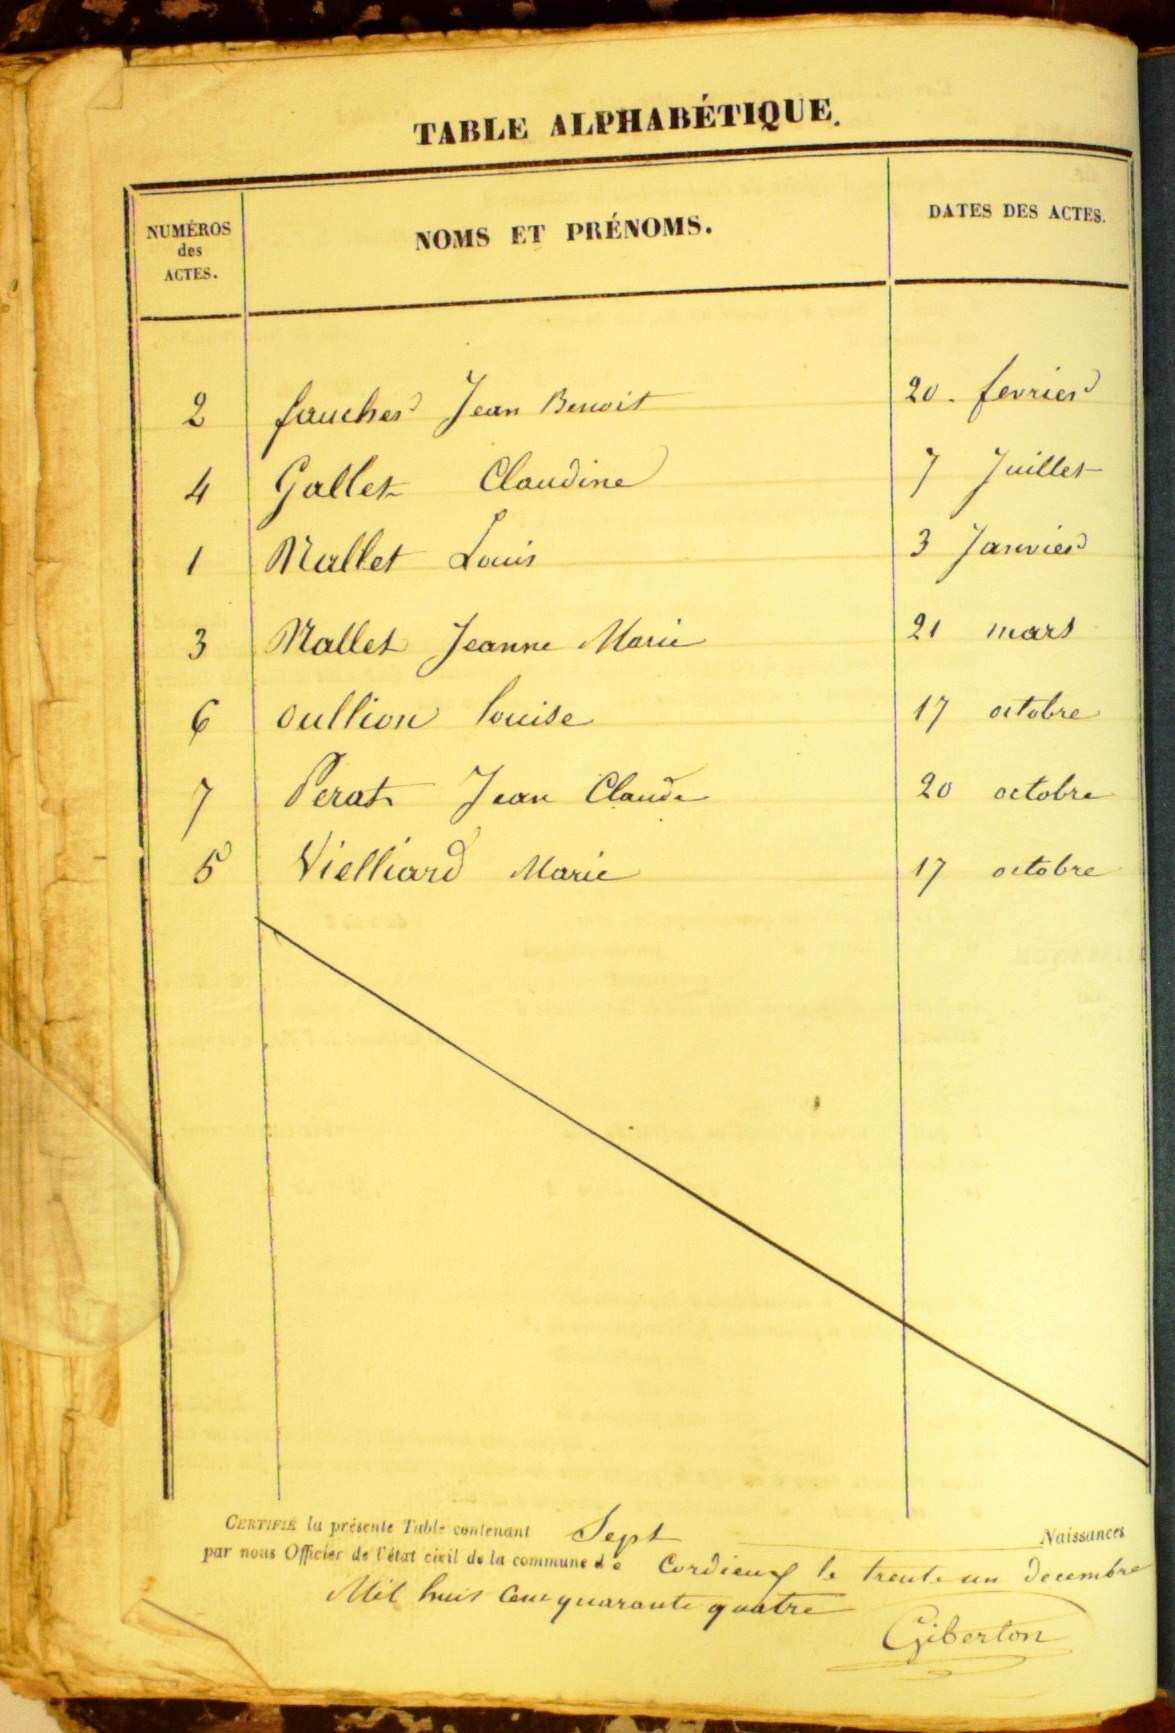 TABLE ALPHABÉTIQUE.
NUMÉROS
des
ACTES.
NOMS ET PRÉNOMS.
DATES DES ACTES.
2 faucher Jean Benoit 20. fevrier
4 Gallet Claudine 7 Juillet
1 Mallet Louis 3 Janvier
3 Mallet Jeanne Marie 21 mars
6 oullion louise 17 octobre
7 Perat Jean Claude 20 octobre
5 Vielliard Marie 17 octobre
CERTIFIÉ la présente Table contenant Sept Naissances
par nous Officier de l'état civil de la commune de Cordieux le trente un decembre
Mil huit Cent quarante quatre
Giberton